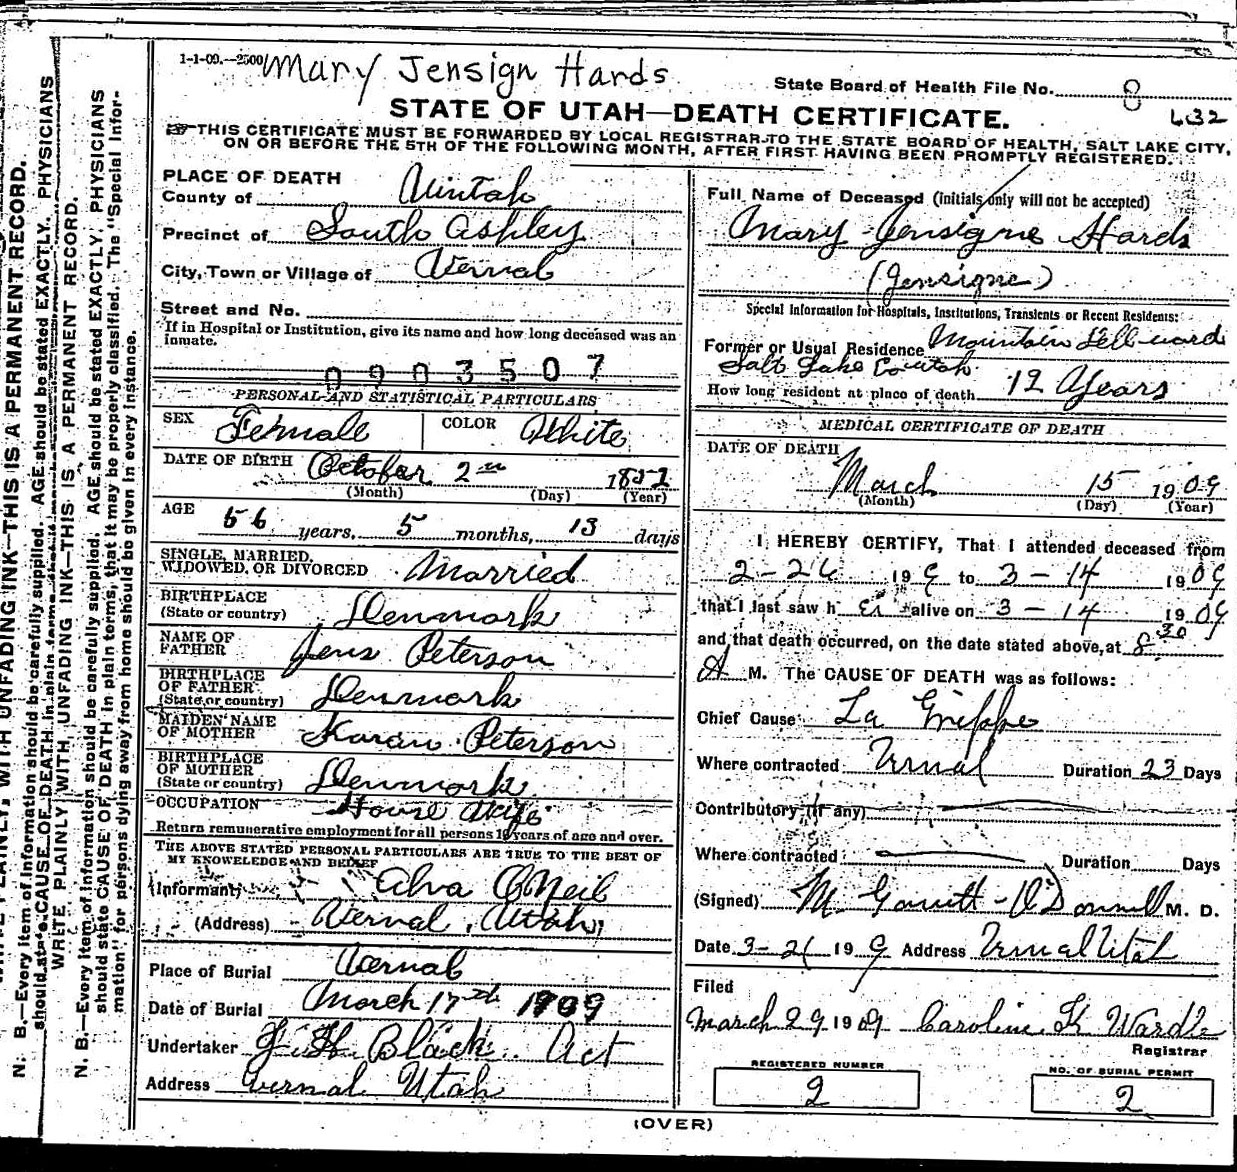 1-1-09.—2500 Mary Jensign Hards
State Board of Health File No. 8
STATE OF UTAH—DEATH CERTIFICATE. 632
THIS CERTIFICATE MUST BE FORWARDED BY LOCAL REGISTRAR TO THE STATE BOARD OF HEALTH, SALT LAKE CITY,
ON OR BEFORE THE 5TH OF THE FOLLOWING MONTH, AFTER FIRST HAVING BEEN PROMPTLY REGISTERED.
PLACE OF DEATH
County of Uintah
Precinct of South Ashley
City, Town or Village of Vernal
Street and No.
If in Hospital or Institution, give its name and how long deceased was an
inmate.
0903507
PERSONAL AND STATISTICAL PARTICULARS
SEX Female COLOR White
DATE OF BIRTH October 2nd 1852
(Month) (Day) (Year)
AGE 56 years, 5 months, 13 days
SINGLE, MARRIED,
WIDOWED, OR DIVORCED Married
BIRTHPLACE
(State or country) Denmark
NAME OF
FATHER Jens Peterson
BIRTHPLACE
OF FATHER
(State or country) Denmark
MAIDEN NAME
OF MOTHER Karan Peterson
BIRTHPLACE
OF MOTHER
(State or country) Denmark
OCCUPATION House Wife
Return remunerative employment for all persons 10 years of age and over.
THE ABOVE STATED PERSONAL PARTICULARS ARE TRUE TO THE BEST OF
MY KNOWELEDGE AND BELIEF
(Informant) Alva O'Neil
(Address) Vernal, Utah
Place of Burial Vernal
Date of Burial March 17th 1909
Undertaker Black Act
Address Vernal Utah
Full Name of Deceased (Initials only will not be accepted)
Mary Jensigne Hards
(Jensigne)
Special Information for Hospitals, Institutions, Transients or Recent Residents:
Former or Usual Residence Mountain Dell ward
Salt Lake Co Utah
How long resident at place of death 12 Years
MEDICAL CERTIFICATE OF DEATH
DATE OF DEATH
March 15 1909
(Month) (Day) (Year)
I HEREBY CERTIFY, That I attended deceased from
2-26 199 to 3-14 1909
that I last saw h er alive on 3-14 1909
and that death occurred, on the date stated above, at 8 30
A M. The CAUSE OF DEATH was as follows:
Chief Cause La Grippe
Where contracted Vernal Duration 23 Days
Contributory (if any)
Where contracted Duration Days
(Signed) M. Garrett-O'Donnell M. D.
Date 3-21 199 Address Vernal Utah
Filed
March 29 1909 Caroline K Wardle
Registrar
REGISTERED NUMBER
2
NO. OF BURIAL PERMIT
2
(OVER)
WITH UNFADING INK—THIS IS A PERMANENT RECORD.
N. B.—Every item of information should be carefully supplied. AGE should be stated EXACTLY. PHYSICIANS
should state CAUSE OF DEATH in plain terms
WRITE PLAINLY, WITH UNFADING INK—THIS IS A PERMANENT RECORD.
N. B.—Every item of information should be carefully supplied. AGE should be stated EXACTLY. PHYSICIANS
should state CAUSE OF DEATH in plain terms, that it may be properly classified. The "Special Infor-
mation" for persons dying away from home should be given in every instance.